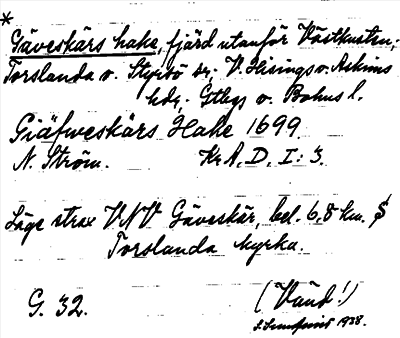 *
Gäveskärs hake, fjärd utanför Västkusten;
Torslanda o. Styrsö sr; V. Hisings o. Askims
hdr; Gtbgs o. Bohus l.
Giäfweskärs Hake 1699.
N. Ström. Kr A. D. I: 3.
Läge strax VNV Gäveskär, bel. 6,8 km. S
Torslanda kyrka.
G. 32. (Vänd!)
1928.